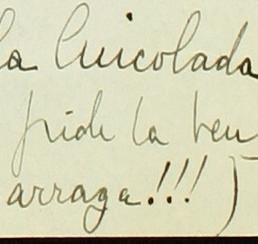 la Luicolada
pide la ben
arraga!!! )